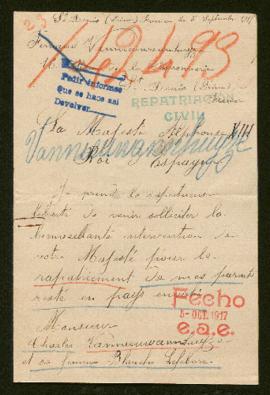 23
St Denis (Seine) le 5 Septembre 1917
14493
Pedir informes
que se hace así
Devolver
St Denis (Seine)
REPATRIACION
CIVIL
Sa Majesté Alphonse XIII
Roi d'Espagne
Je prends la respectueuse
liberté de venir solliciter la
bienveillante intervention de
votre Majesté pour le
rapatriement de mes parents
resté en pays envahi
Fecho
5-OCT. 1917
e.a.e.
Monsieur
Charles
et sa femme Blanche Lefebvre